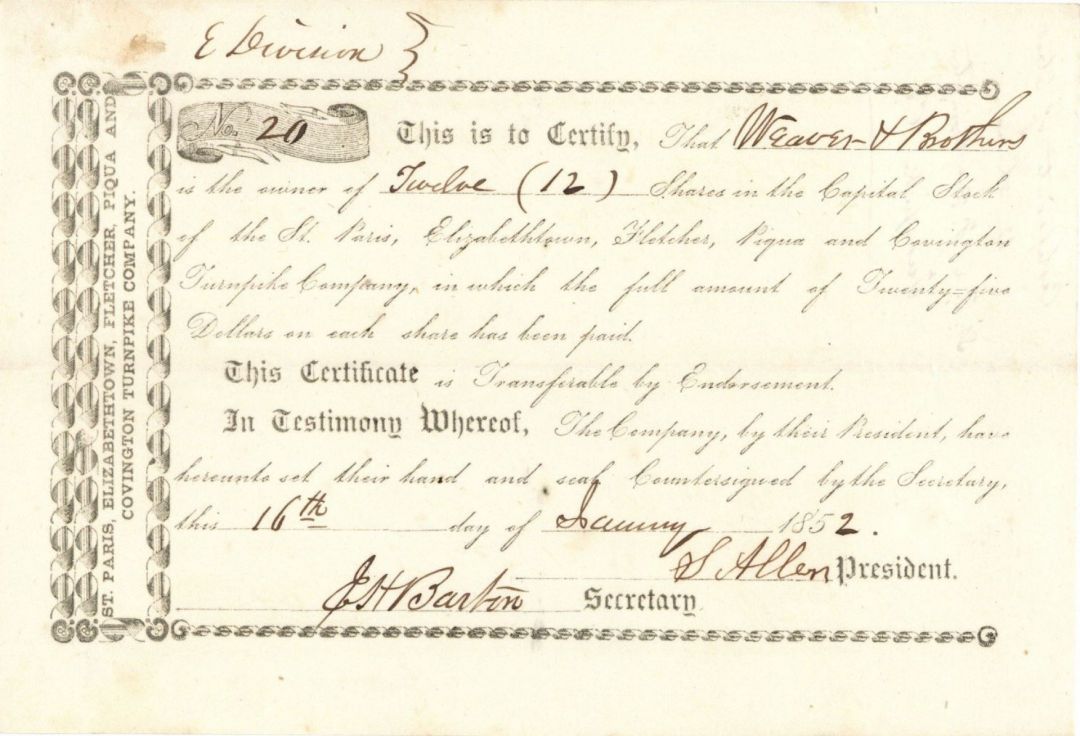 E Division
ST. PARIS, ELIZABETHTOWN, FLETCHER, PIQUA AND
COVINGTON TURNPIKE COMPANY.
No. 20 This is to Certify, That Weaver & Brothers
is the owner of Twelve (12) Shares in the Capital Stock
of the St. Paris, Elizabethtown, Fletcher, Piqua and Covington
Turnpike Company, in which the full amount of Twenty=five
Dollars on each share has been paid.
This Certificate is Transferable by Endorsement.
In Testimony Whereof, The Company, by their President, have
hereunto set their hand and seal, Countersigned by the Secretary,
this 16th day of January 1852.
S Allen President.
J H Barton Secretary